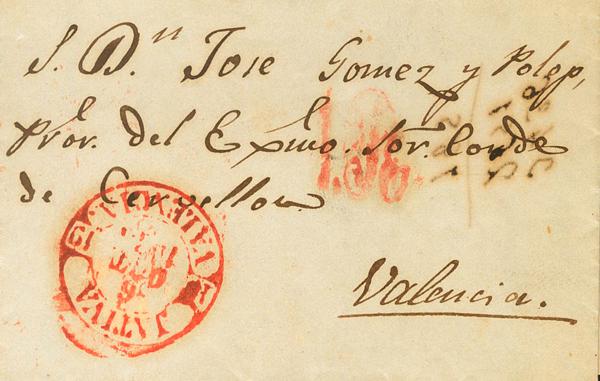 S. Dⁿ Jose Gomez y Polop,
Pror. del Exmo. Sor. Conde
de Cervellon
Valencia.
JATIVA
VALENCIA